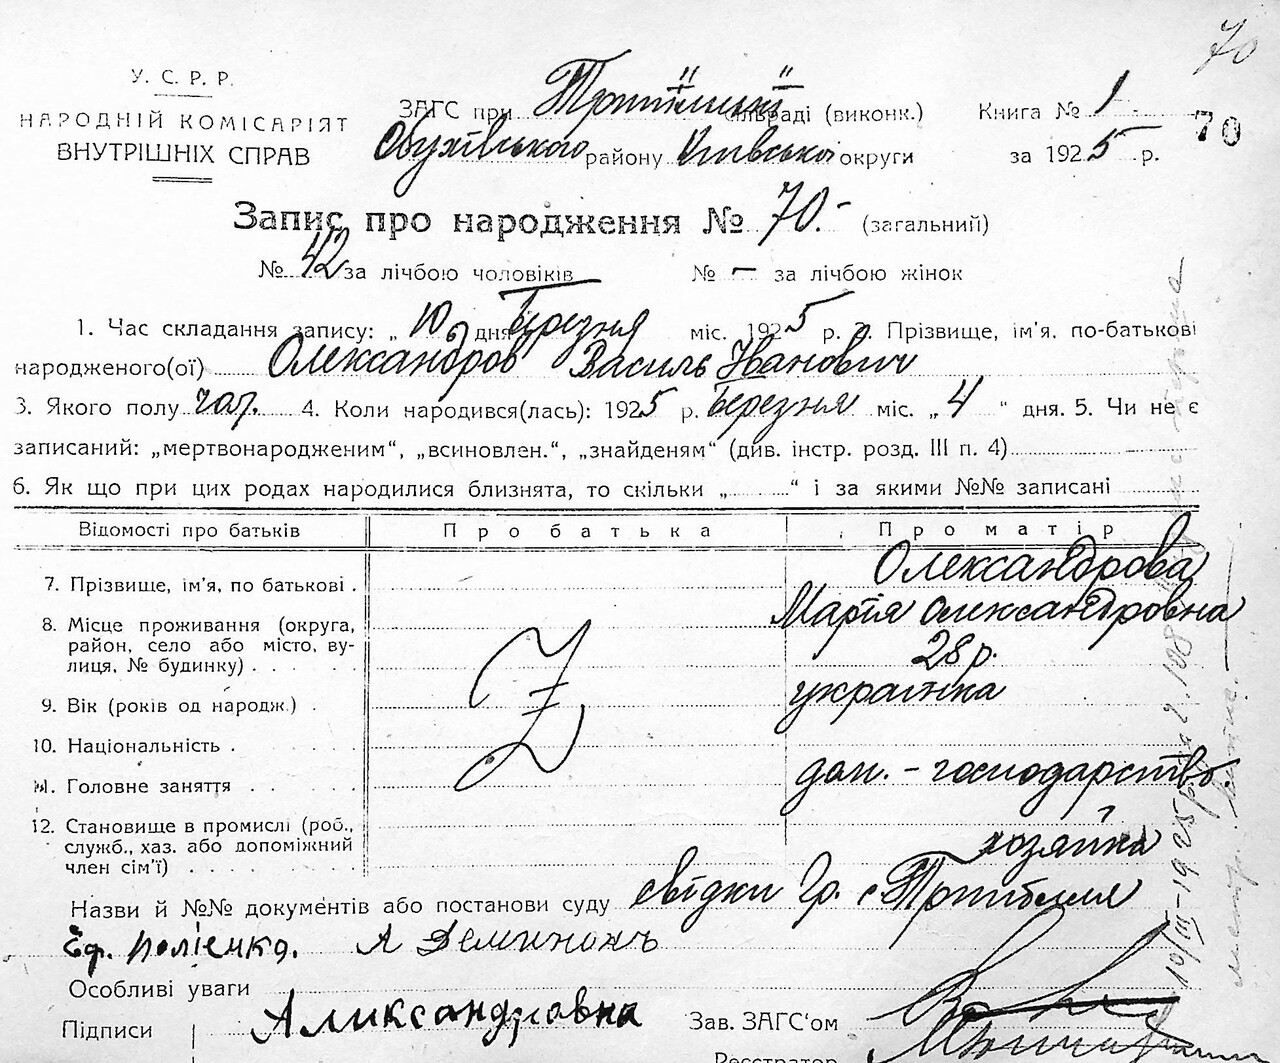 70
У. С. Р. Р.
НАРОДНІЙ КОМІСАРІЯТ
ВНУТРІШНІХ СПРАВ
ЗАГС при Трипільскій сільраді (виконк.)
Обухівського району Київської округи
Книга № 1
за 1925 р.
70
Запис про народження № 70.- (загальний)
№ 42 за лічбою чоловіків № – за лічбою жінок
1. Час складання запису: „ 10 " дня березня міс. 1925 р. 2. Прізвище, ім'я, по-батькові
народженого(ої) Олександров Василь Іванович
3. Якого полу чол. 4. Коли народився(лась): 1925 р. березня міс. „ 4 " дня. 5. Чи не є
записаний: „мертвонародженим", „всиновлен.", „знайденям" (див. інстр. розд. III п. 4)
6. Як що при цих родах народилися близнята, то скільки „ " і за якими №№ записані
Відомості про батьків Про батька Про матір
7. Прізвище, ім'я, по батькові . Олександрова
Марія Олександровна
8. Місце проживання (округа,
район, село або місто, ву-
лиця, № будинку) . . . .
28 р.
9. Вік (років од народж.) . українка
10. Національність . . . .
11. Головне заняття . . . . дом. - господарство
12. Становище в промислі (роб.,
служб., хаз. або допоміжний
член сім'ї) . . . . .
хозяйка
Назви й №№ документів або постанови суду свідки гр. с Трипілля
Еф. Полієнко. А
Особливі уваги
Підписи Александравна Зав. ЗАГС'ом
Реєстратор
10/III-1925 р.